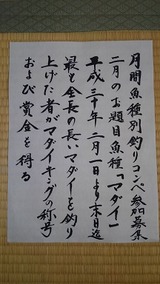 月間魚種別釣りコンペ参加募集
二月のお題目魚種「マダイ」
平成三十年 二月一日より末日迄
最も全長の長いマダイを釣り
上げた者がマダイキングの称号
および賞金を得る